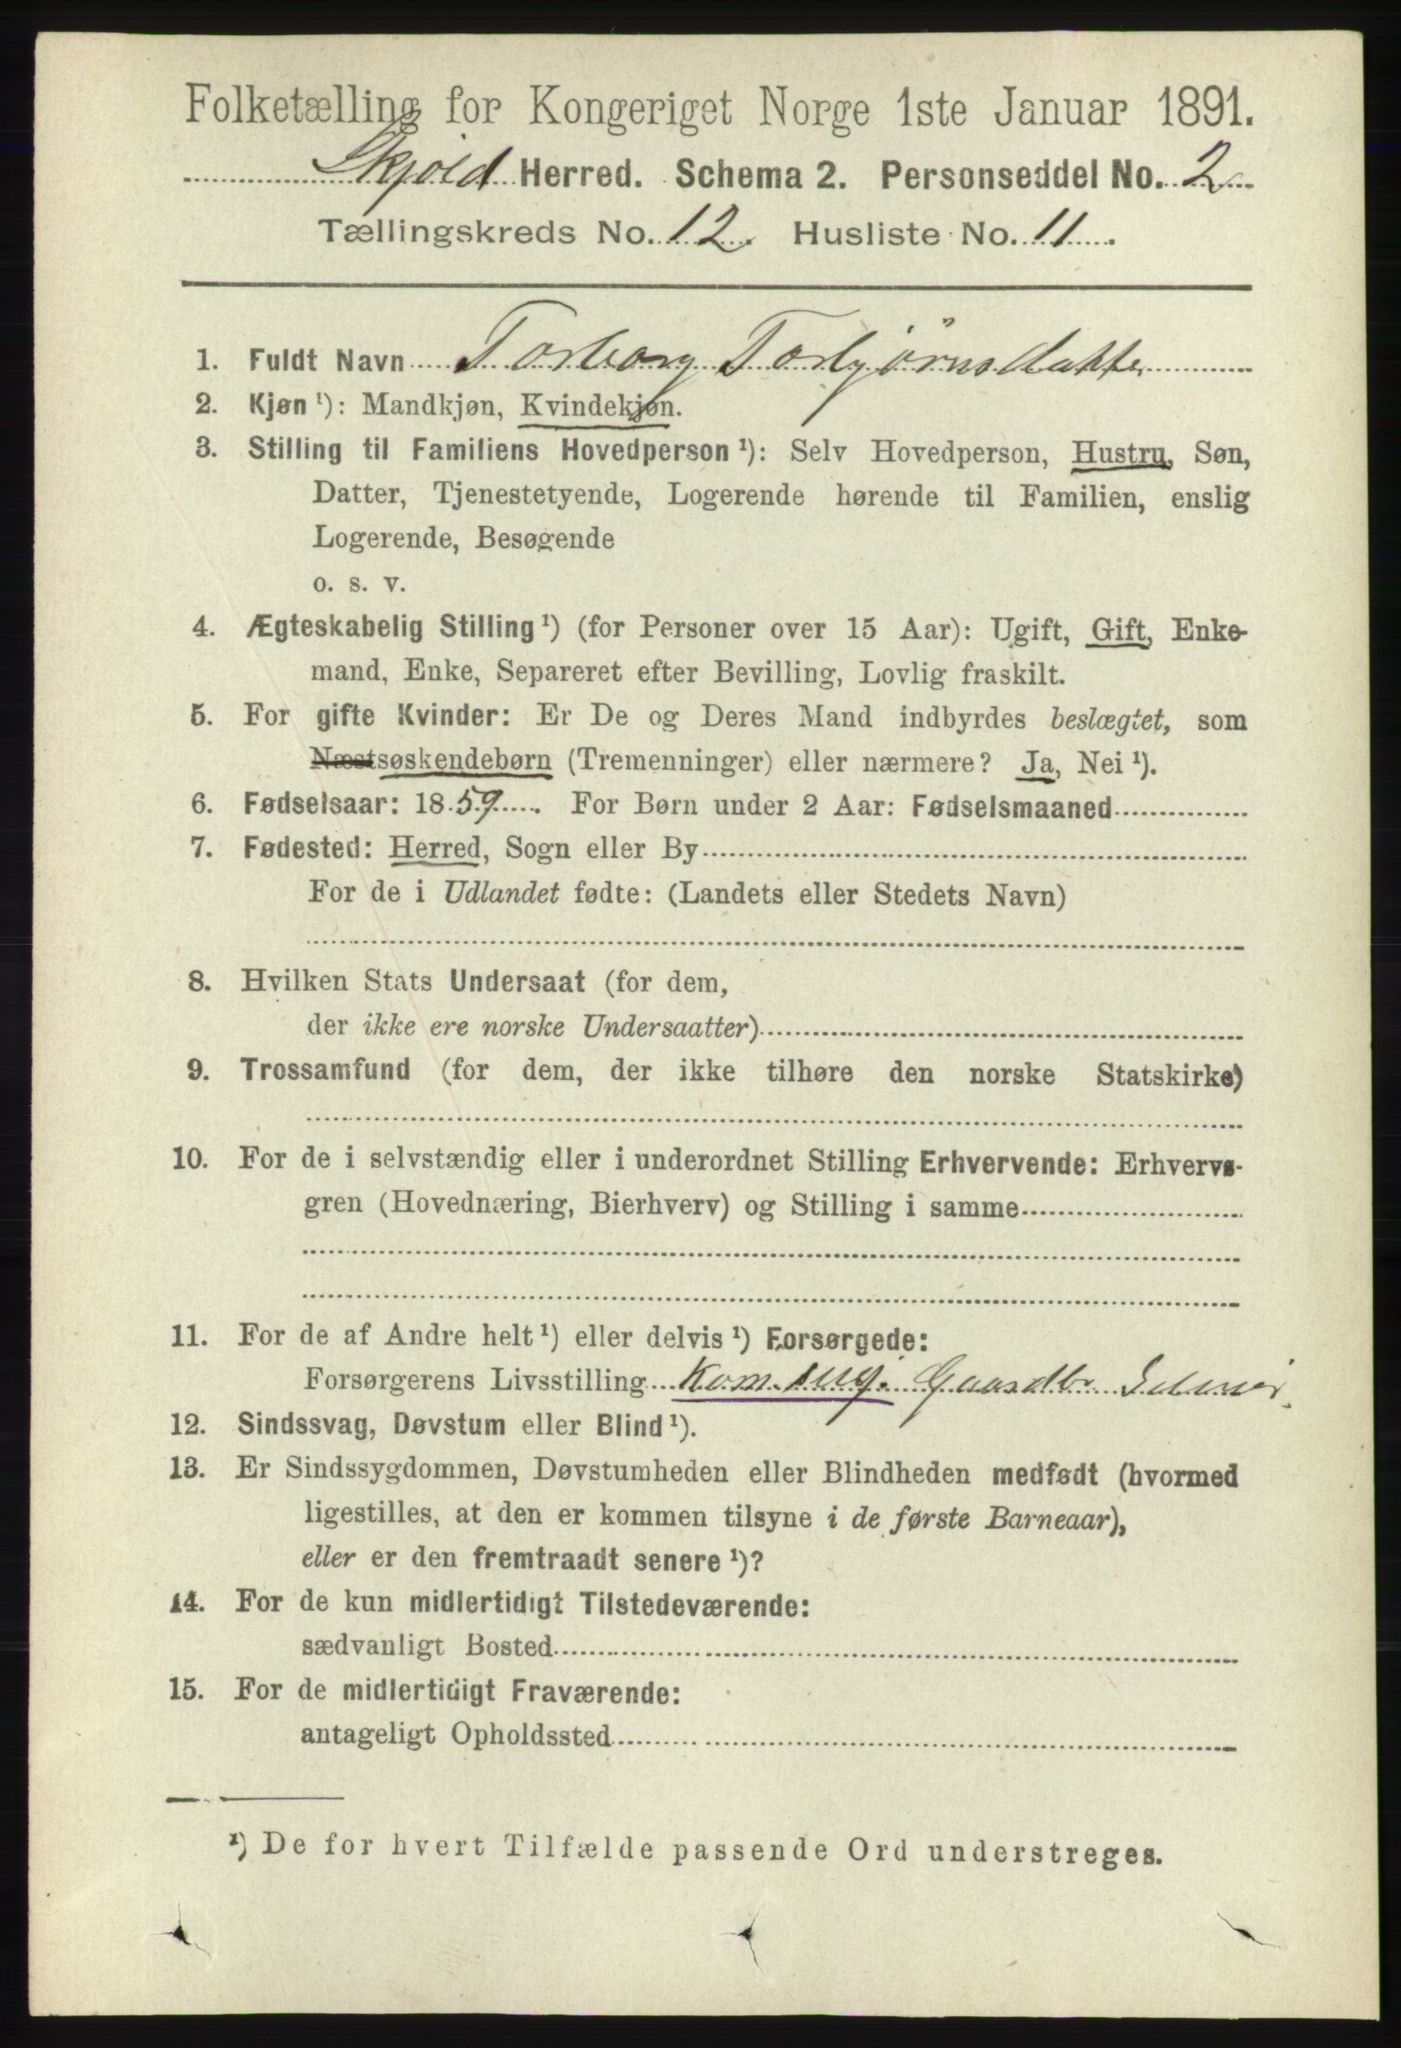 Folketælling for Kongeriget Norge 1ste Januar 1891.
Skjold Herred. Schema 2. Personseddel No. 2
Tællingskreds No. 12. Husliste No. 11.
1. Fuldt Navn Torborg Torbjørnsdatter
2. Kjøn ¹): Mandkjøn, Kvindekjøn.
3. Stilling til Familiens Hovedperson ¹): Selv Hovedperson, Hustru, Søn,
Datter, Tjenestetyende, Logerende hørende til Familien, enslig
Logerende, Besøgende
o. s. v.
4. Ægteskabelig Stilling ¹) (for Personer over 15 Aar): Ugift, Gift, Enke-
mand, Enke, Separeret efter Bevilling, Lovlig fraskilt.
5. For gifte Kvinder: Er De og Deres Mand indbyrdes beslægtet, som
Næstsøskendebørn (Tremenninger) eller nærmere? Ja, Nei ¹).
6. Fødselsaar: 1859. For Børn under 2 Aar: Fødselsmaaned
7. Fødested: Herred, Sogn eller By
For de i Udlandet fødte: (Landets eller Stedets Navn)
8. Hvilken Stats Undersaat (for dem,
der ikke ere norske Undersaatter)
9. Trossamfund (for dem, der ikke tilhøre den norske Statskirke)
10. For de i selvstændig eller i underordnet Stilling Erhvervende: Erhvervs-
gren (Hovednæring, Bierhverv) og Stilling i samme
11. For de af Andre helt ¹) eller delvis ¹) Forsørgede:
Forsørgerens Livsstilling Kom. Gaardbr
12. Sindssvag, Døvstum eller Blind ¹).
13. Er Sindssygdommen, Døvstumheden eller Blindheden medfødt (hvormed
ligestilles, at den er kommen tilsyne i de første Barneaar),
eller er den fremtraadt senere ¹)?
14. For de kun midlertidigt Tilstedeværende:
sædvanligt Bosted
15. For de midlertidigt Fraværende:
antageligt Opholdssted
¹) De for hvert Tilfælde passende Ord understreges.